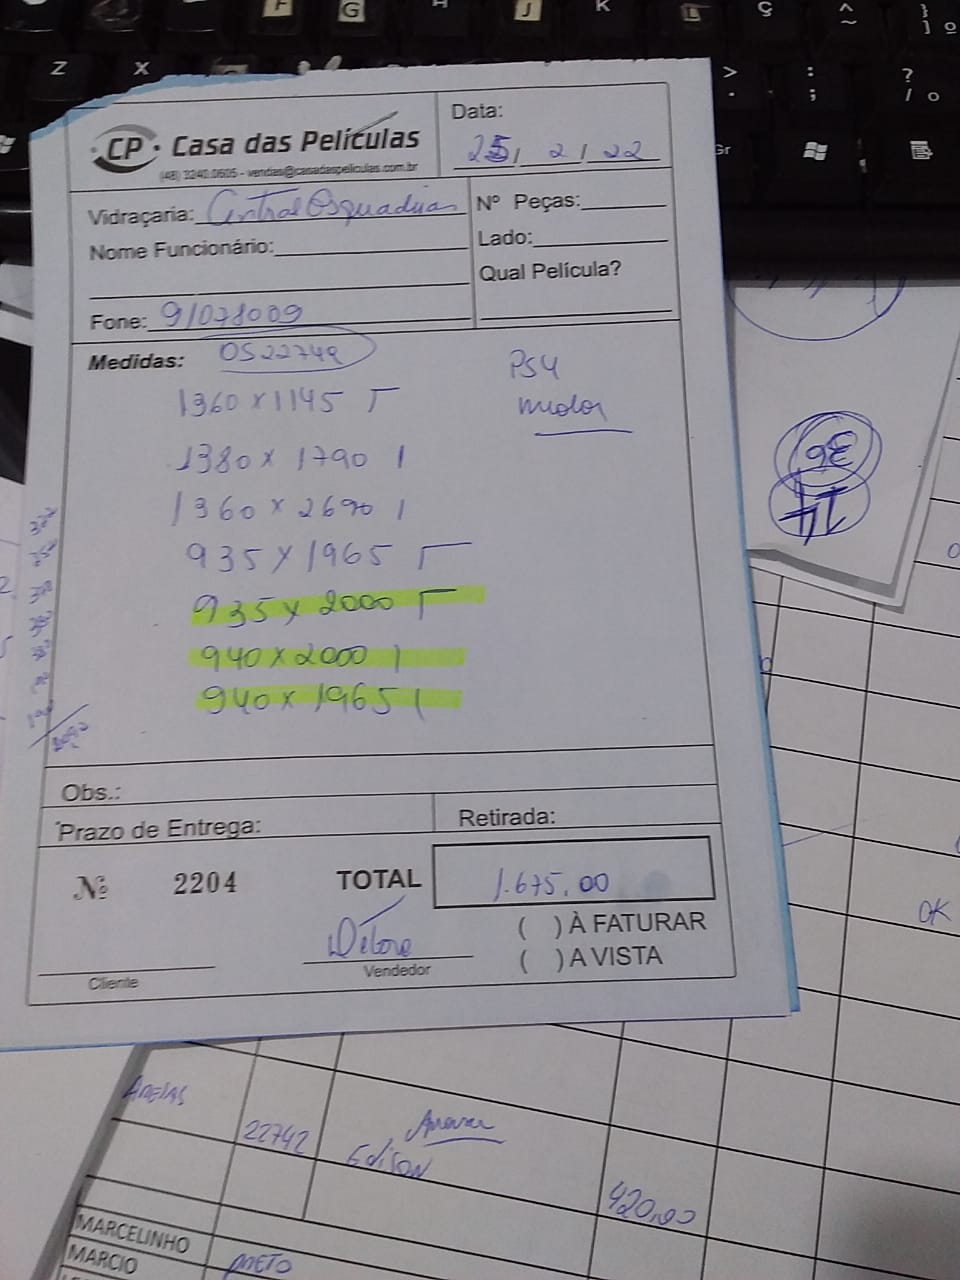 F G H J K L Ç ^ ~ } ] º
Z X > . : ; ? / º
Gr
CP · Casa das Películas
(48) 3240.0605 - vendas@casadaspeliculas.com.br
Data:
25/ 2 / 22
Vidraçaria: Central Esquadrias
Nº Peças:
Nome Funcionário:
Lado:
Qual Película?
Fone: 91078009
Medidas: OS22749
PS4
1360 x 1145 Γ
1380 x 1790 1
1360 x 2690 1
935 x 1965 Γ
935 x 2000 Γ
940 x 2000 1
940 x 1965 1
Obs.:
Prazo de Entrega:
Retirada:
Nº 2204
TOTAL 1.675,00
( ) À FATURAR
( ) A VISTA
Cliente
Vendedor
36
14
OK
AREIAS
22742
EDISON
420,00
MARCELINHO
MARCIO
PRETO